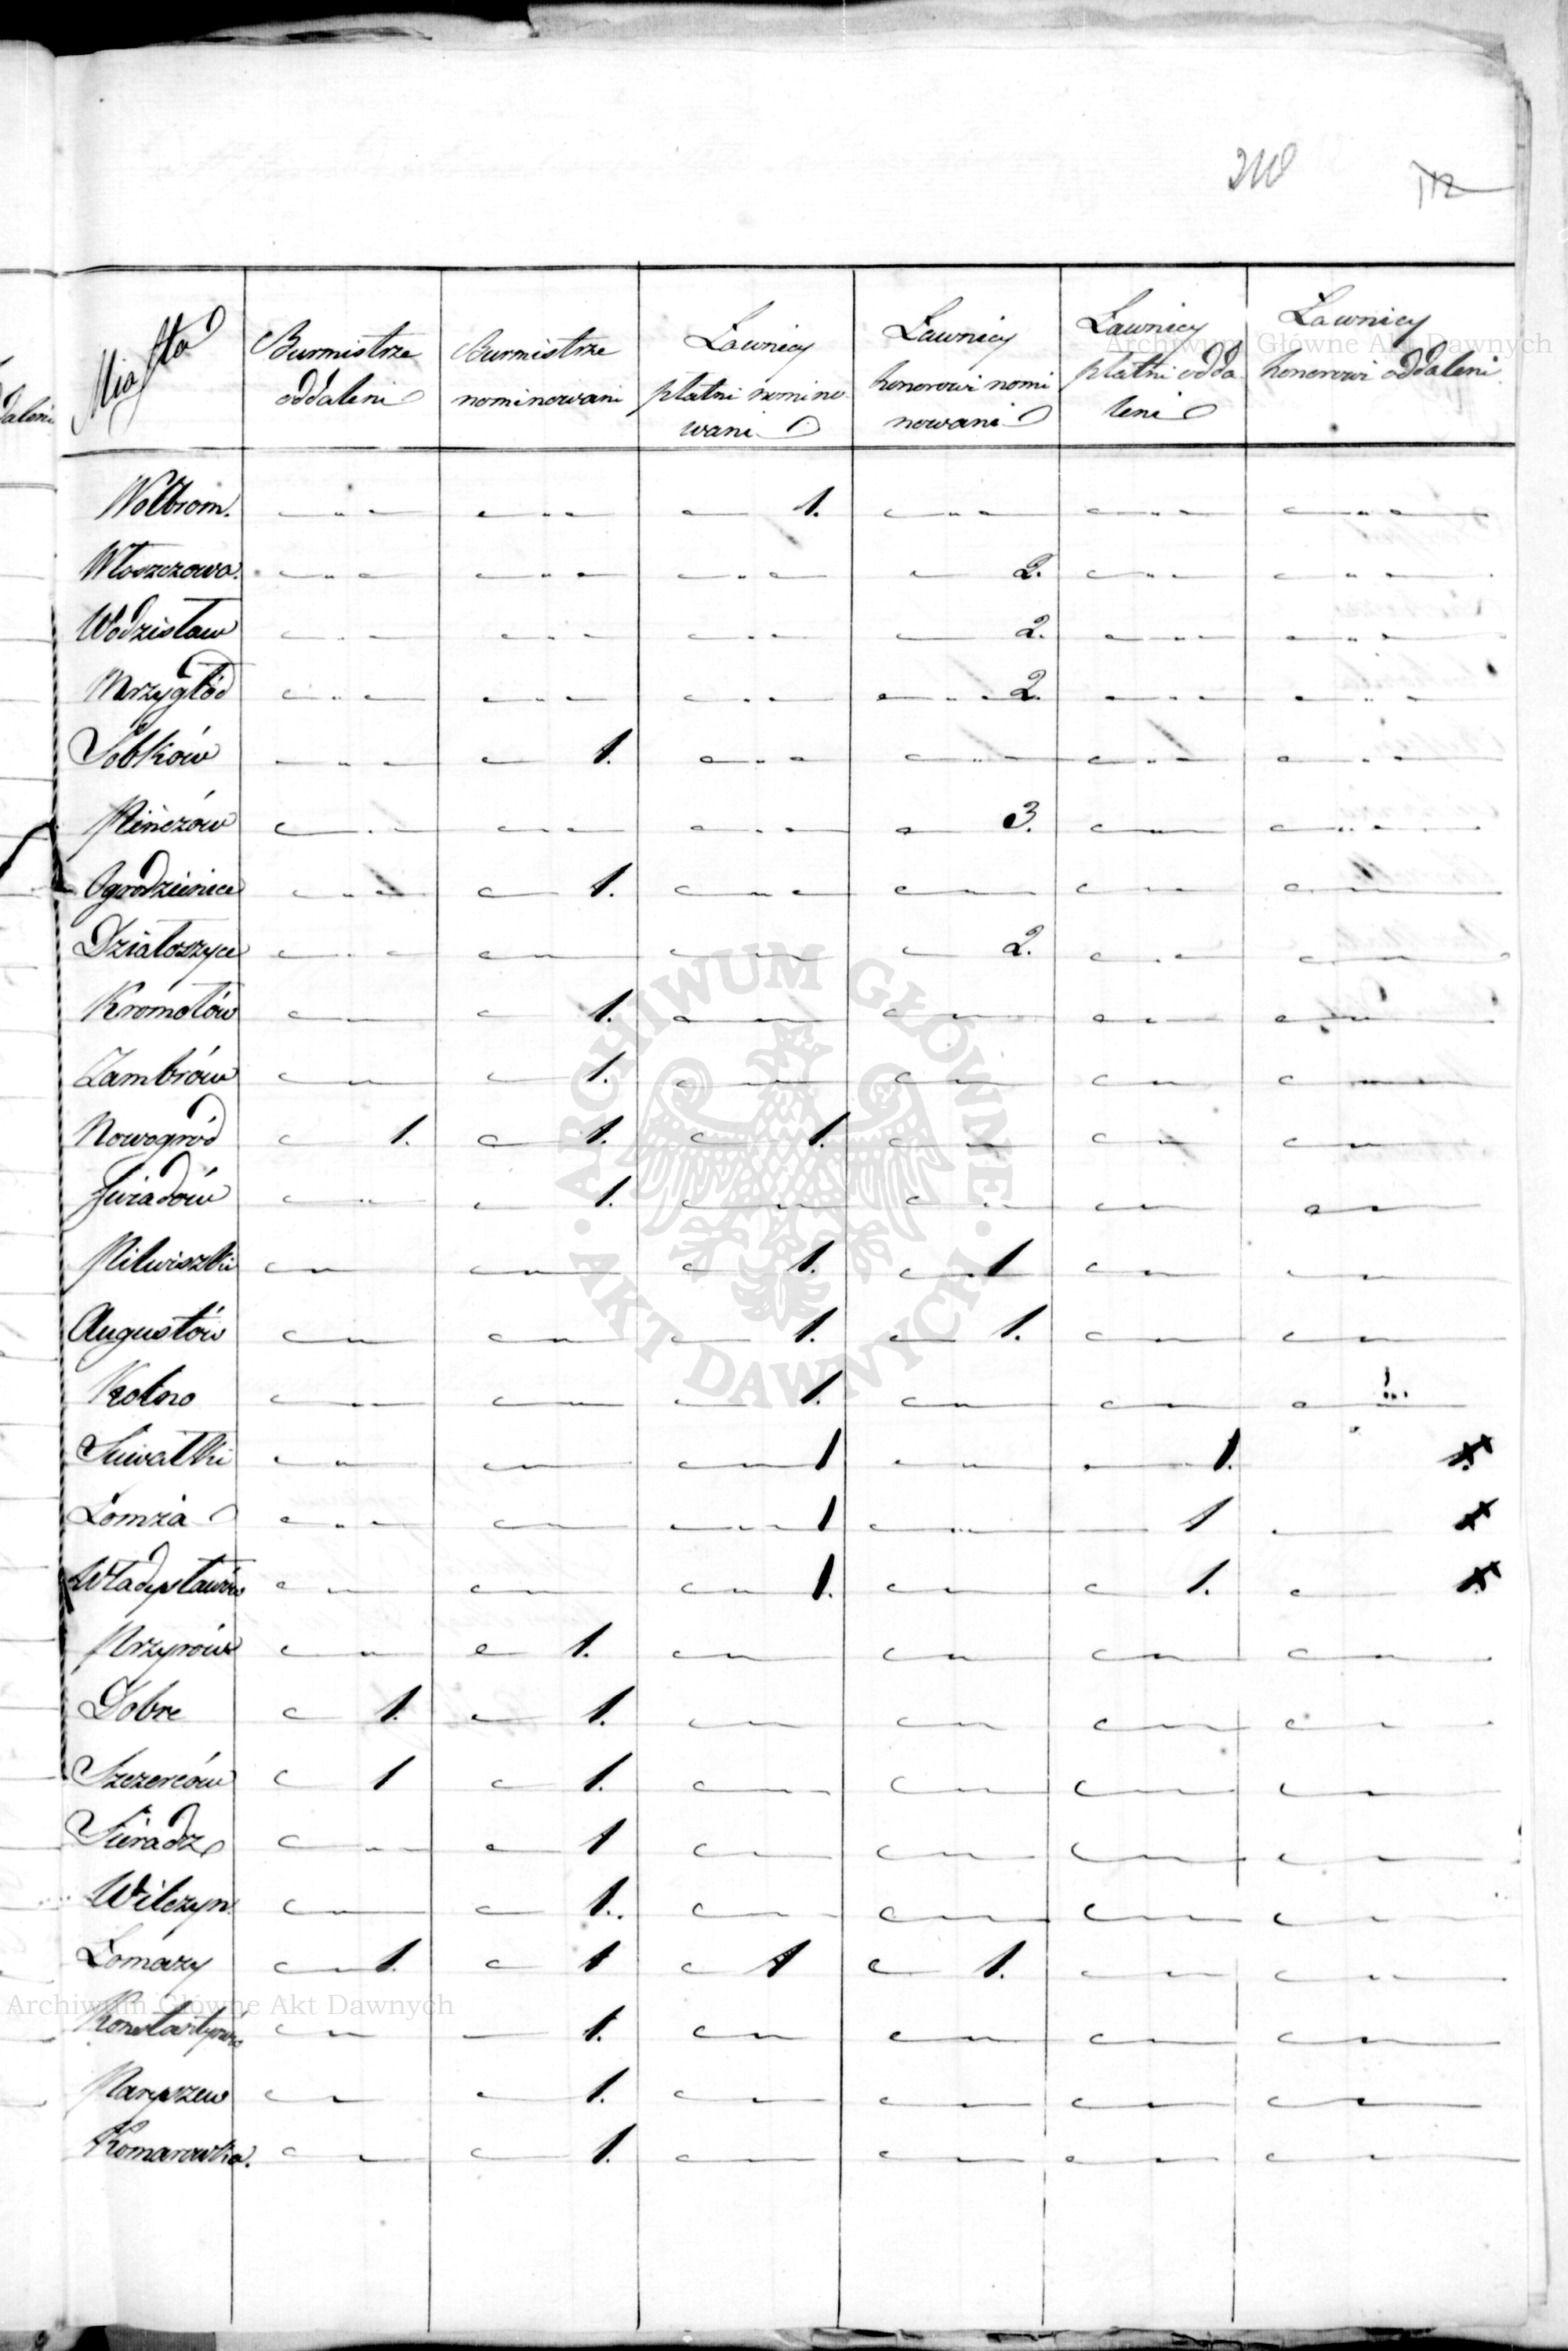 210
112
Miasta | Burmistrze oddaleni | Burmistrze nominowani | Ławnicy płatni nominowani | Ławnicy honorowi nominowani | Ławnicy płatni oddaleni | Ławnicy honorowi oddaleni
Wolbrom. | — | — | 1. | — | — | —
Włoszczowa. | — | — | — | 2. | — | —
Wodzisław | — | — | — | 2. | — | —
Mrzygłód | — | — | — | 2. | — | —
Sobków | — | 1. | — | — | — | —
Pińczów | — | — | — | 3. | — | —
Ogrodzieniec | — | 1. | — | — | — | —
Działoszyce | — | — | — | 2. | — | —
Kromołów | — | 1. | — | — | — | —
Zambrów | — | 1. | — | — | — | —
Nowogród | 1. | 1. | 1. | — | — | —
Śniadów | — | 1. | — | — | — | —
Pilwiszki | — | — | 1. | 1 | — | —
Augustów | — | — | 1. | 1. | — | —
Kolno | — | — | 1. | — | — | 1.
Suwałki | — | — | 1 | — | 1. |
Łomża | — | — | 1 | — | 1 | —
Władysławów | — | — | 1. | — | 1. | —
Przyrów | — | 1. | — | — | — | —
Dobre | 1. | 1. | — | — | — | —
Szczerców | 1 | 1. | — | — | — | —
Sieradz | — | 1 | — | — | — | —
Wilczyn | — | 1. | — | — | — | —
Łomazy | 1. | 1 | 1 | 1. | — | —
Konstantynów | — | 1. | — | — | — | —
Paryszew | — | 1. | — | — | — | —
Komarowka. | — | 1. | — | — | — | —
daleni
Archiwum Główne Akt Dawnych
ARCHIWUM GŁÓWNE · AKT DAWNYCH ·
Archiwum Główne Akt Dawnych